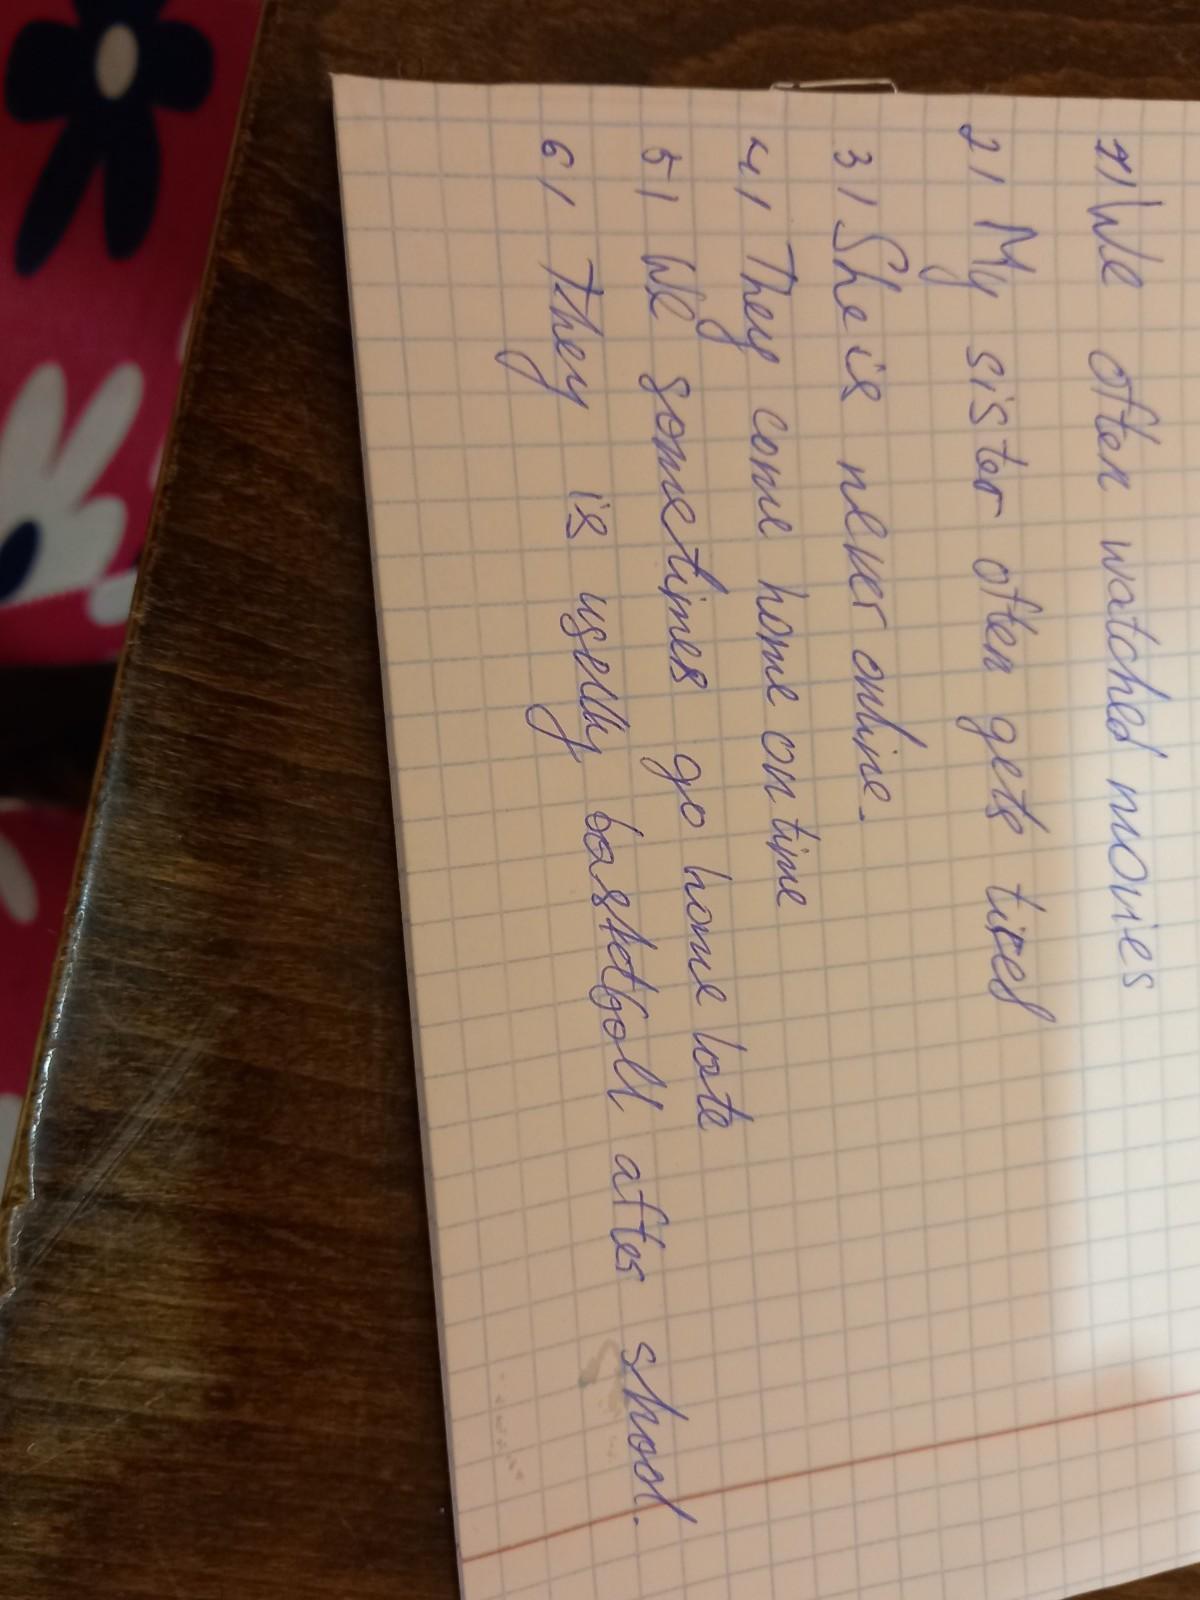 1) We often watched movies
2) My sister often gets tired
3) She is never online.
4) They come home on time
5) We sometimes go home late
6) They is uselly basketboll after shool.